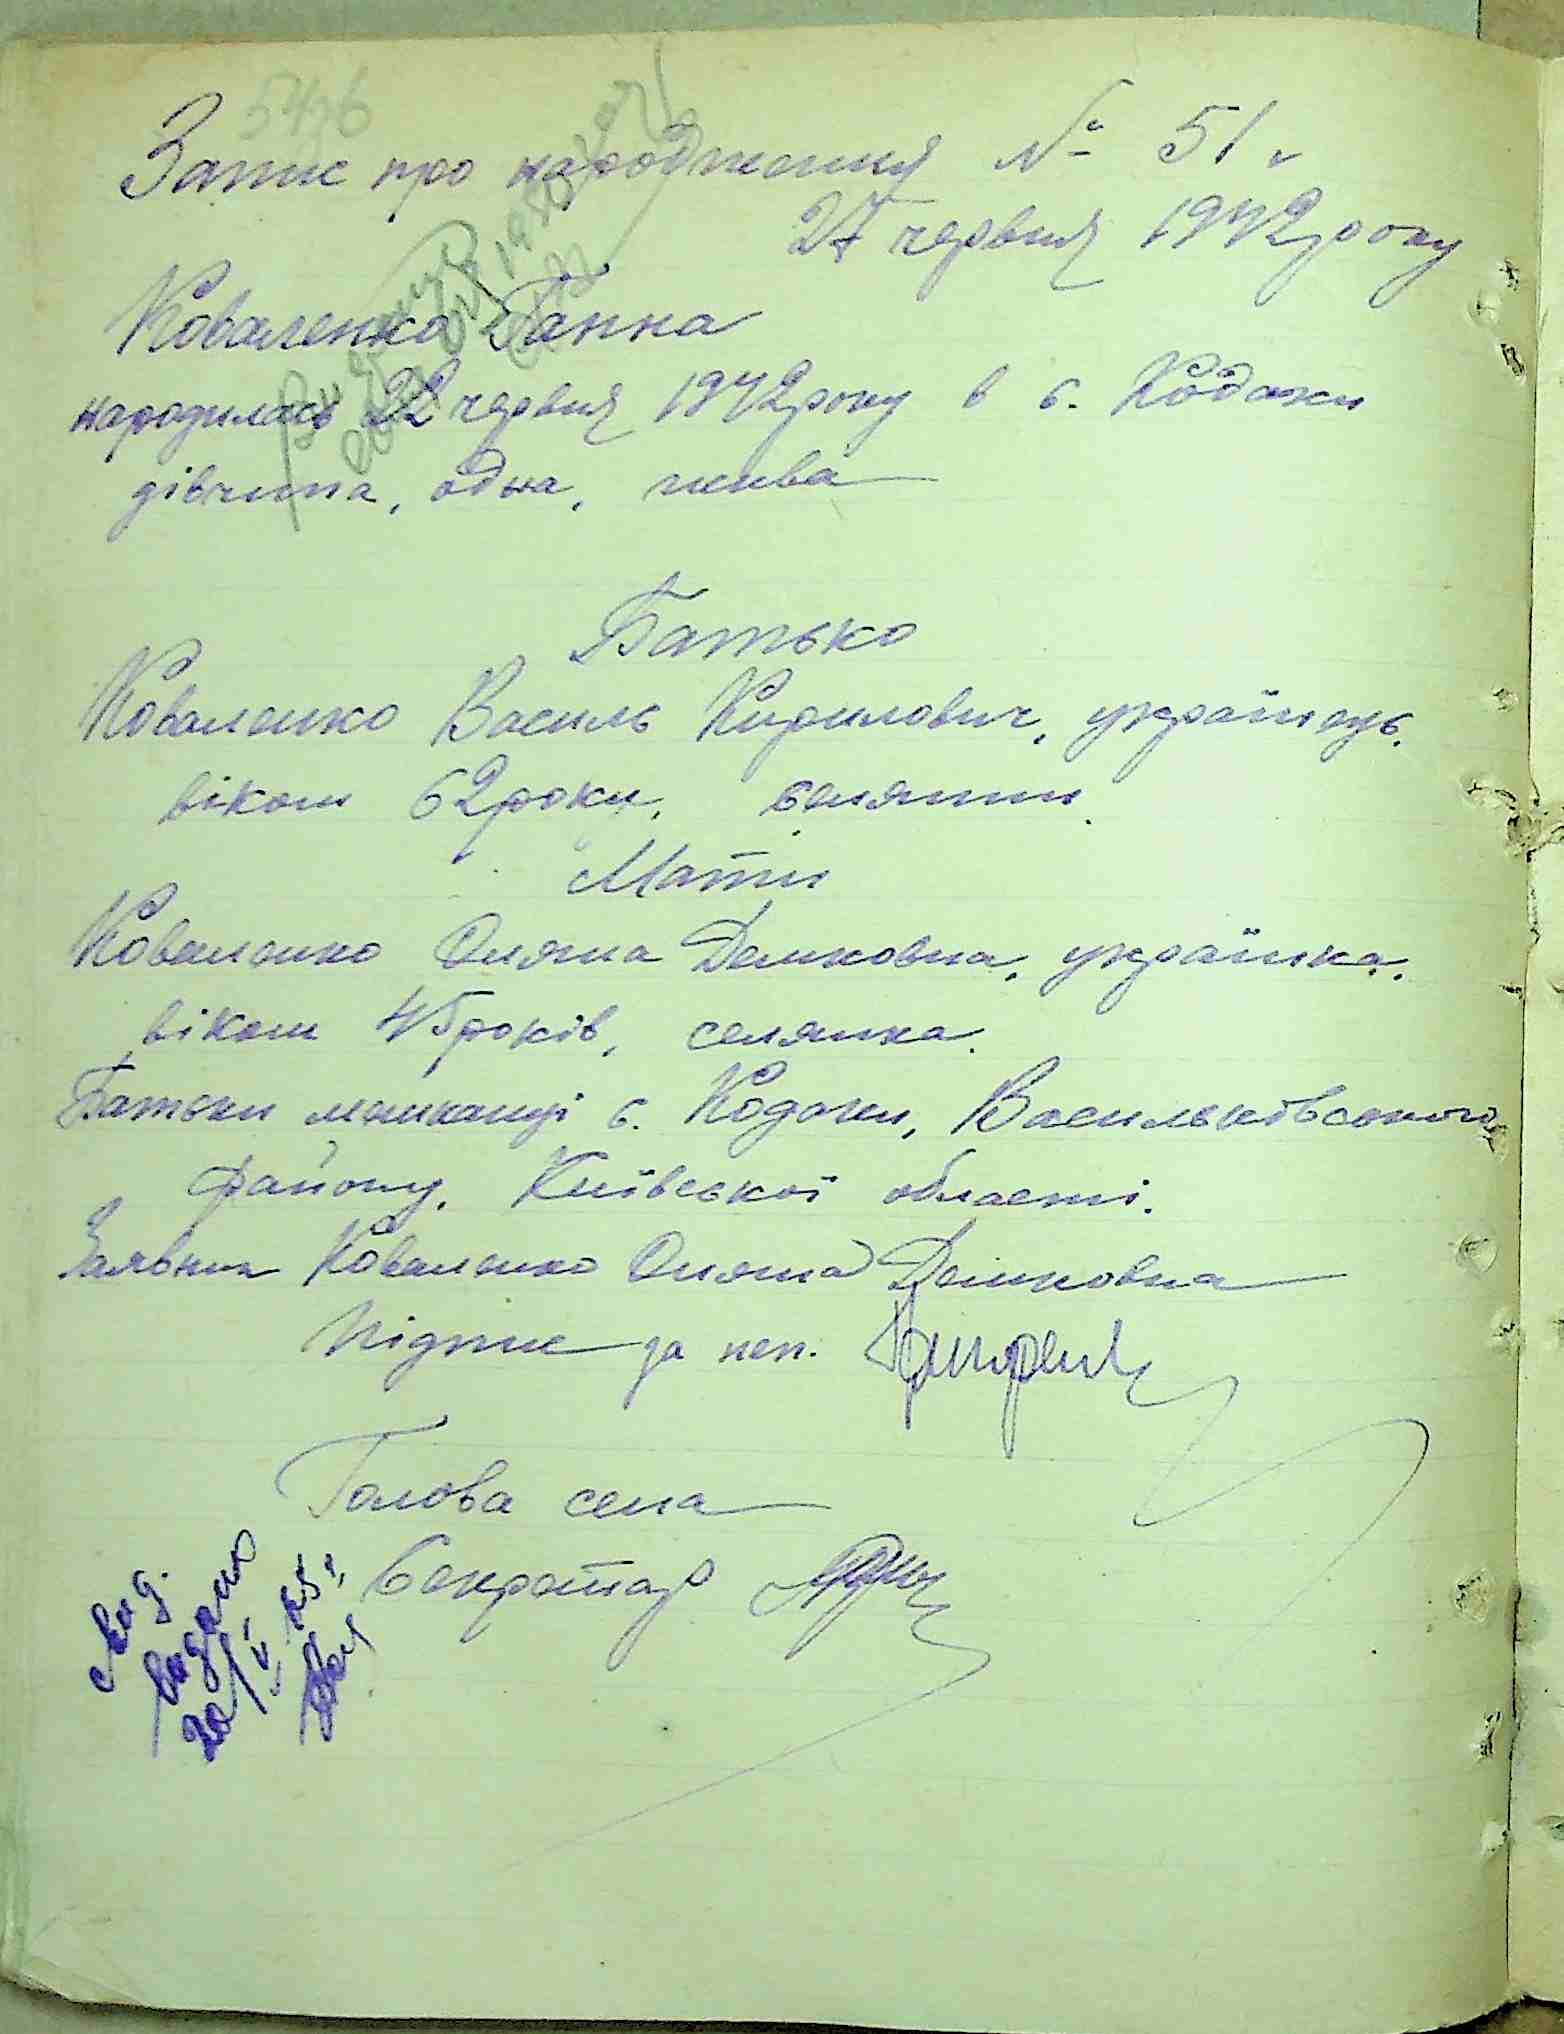 Запис про народження № 51
27 червня 1942 року
Коваленко Ганна
народилась 22 червня 1942 року в с. Кодаки
дівчина, одна, жива
Батько
Коваленко Василь Кирилович, українець,
віком 62 роки, селянин.
Мати
Коваленко Оляна Демковна, українка,
віком 45 років, селянка.
Батьки мешканці с. Кодаки, Васильківського
району, Київської області.
Заявник Коваленко Оляна Демковна
Підпис за неп.
Голова села
Секретар
видано